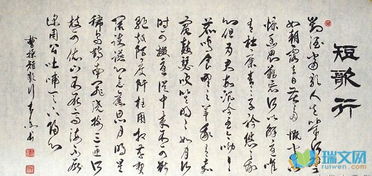 短歌行
對酒當歌人生幾何譬
如朝露去日苦多慨當以
慷憂思難忘何以解憂唯
有杜康青青子衿悠悠我
心但为君故沉吟至今呦呦
鹿鳴食野之苹我有嘉
賓鼓瑟吹笙明明如月何
時可掇憂從中來不可斷
絕越陌度阡枉用相存契
闊談讌心念舊恩月明星
稀烏鵲南飛繞樹三匝何
枝可依山不厭高海不厭
深周公吐哺天下歸心
曹操短歌行
瑞文网